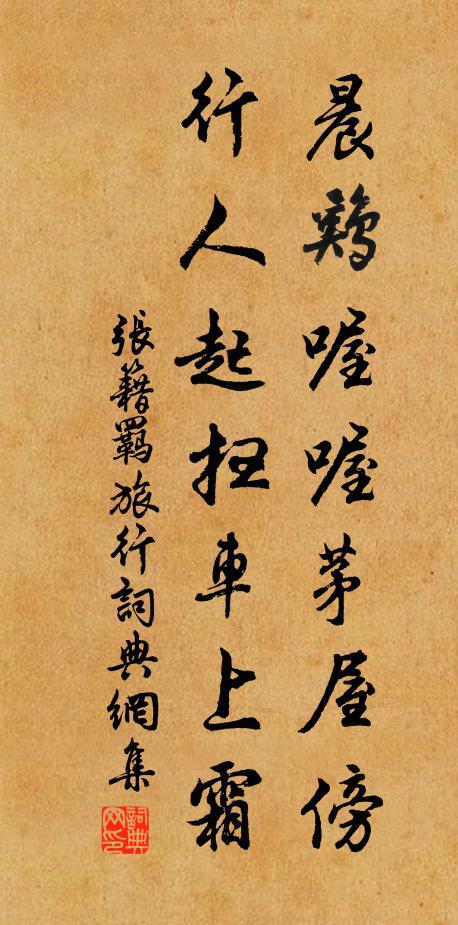 晨鷄喔喔茅屋傍
行人起扫車上霜
張籍羈旅行詞典網集
詞典网印